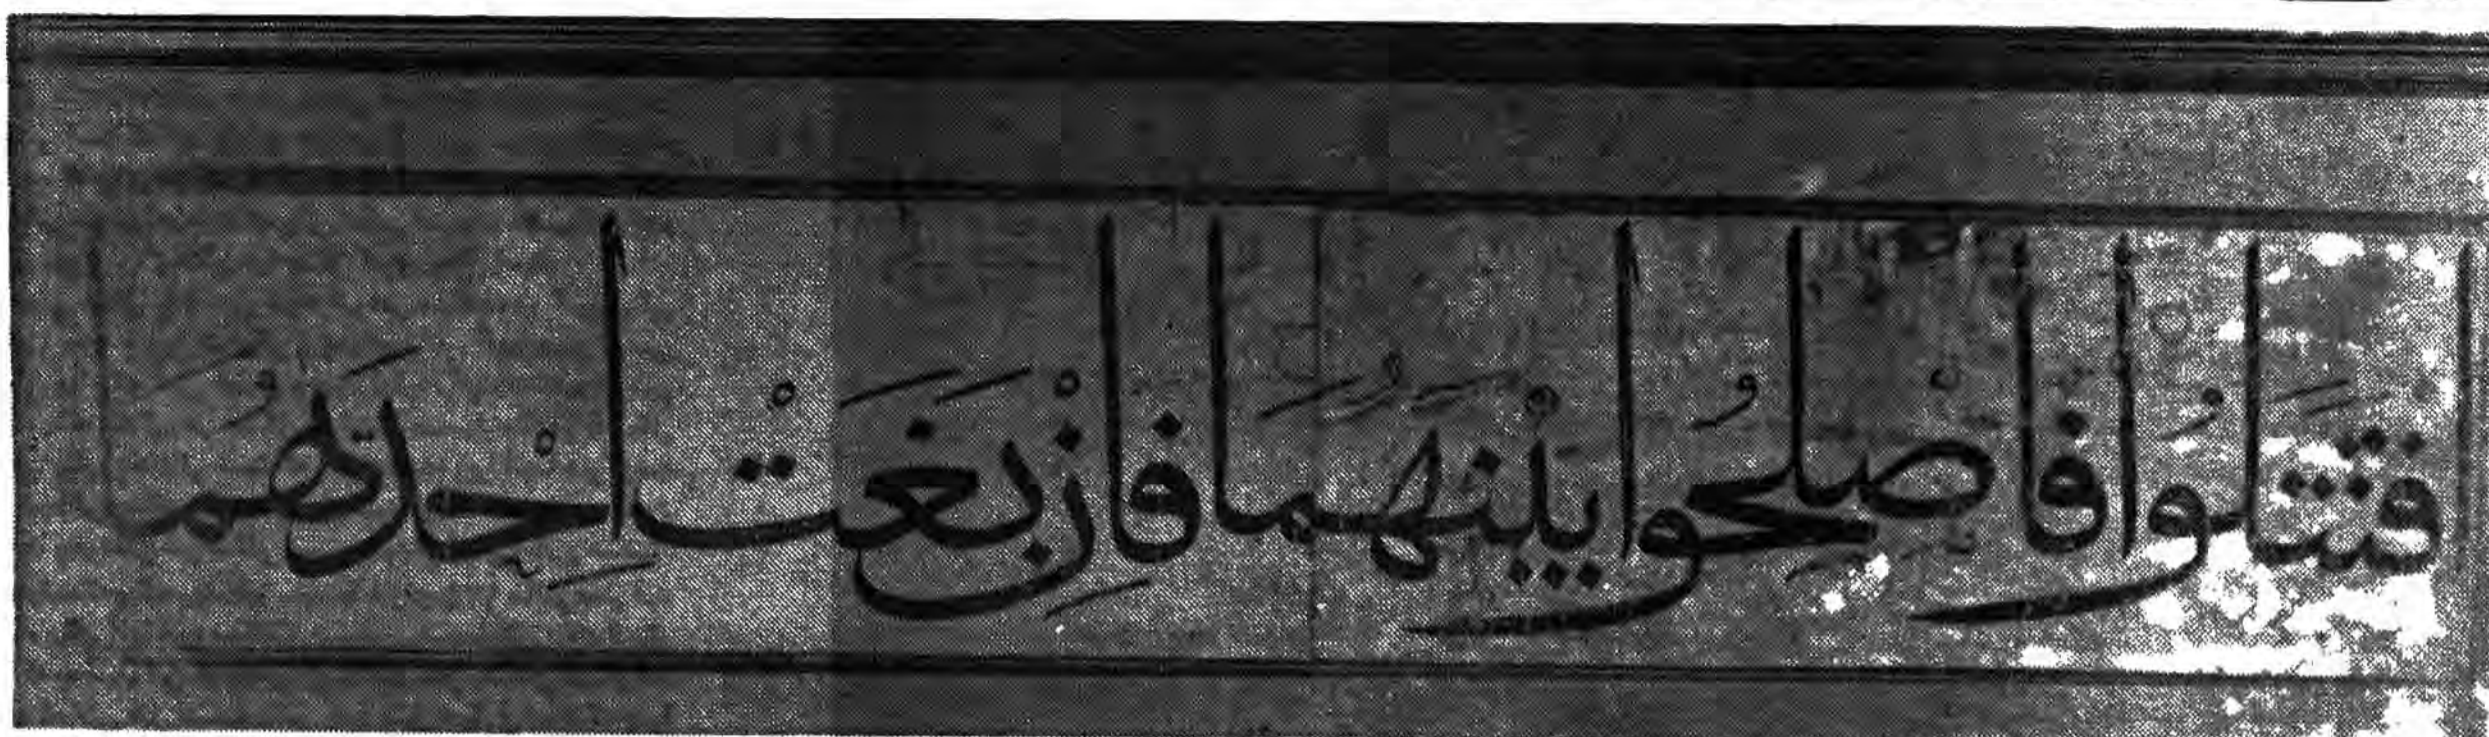 قتتلوا فَأَصْلِحُوا بَيْنَهُمَا فَإِنْ بَغَتْ إِحْدَىهُمَا